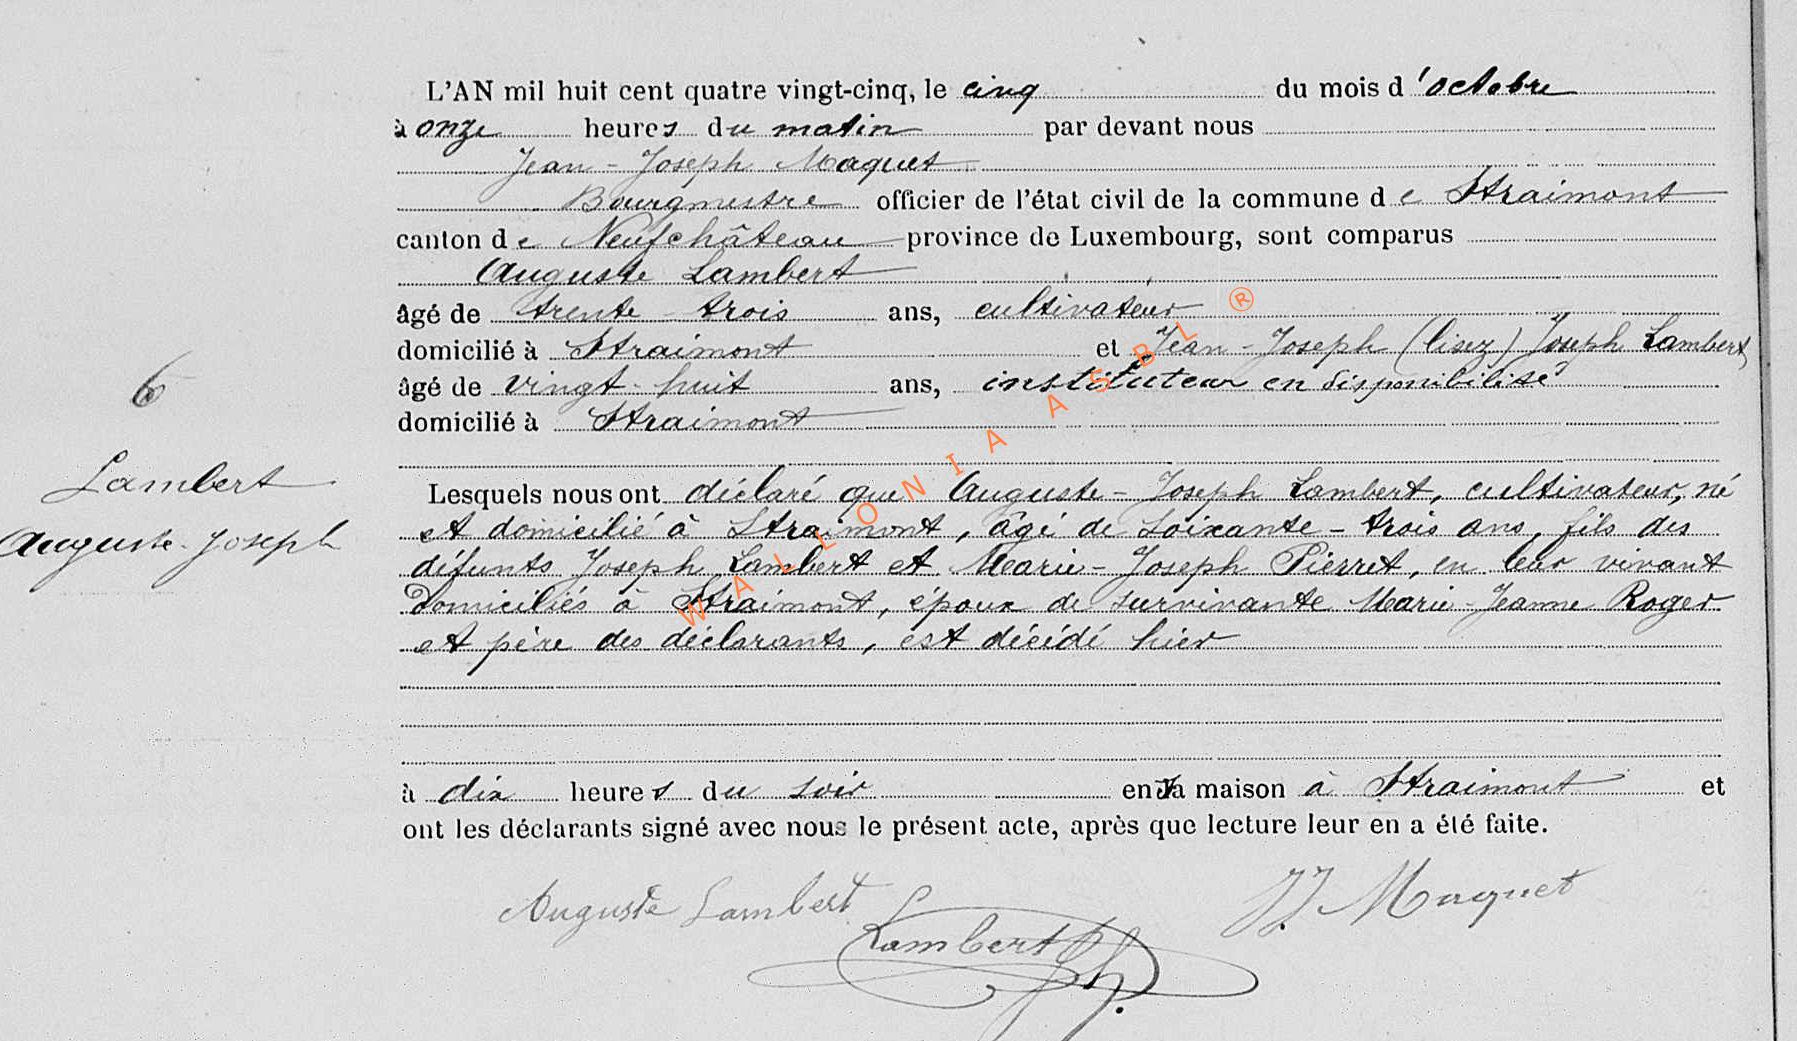 L'AN mil huit cent quatre vingt-cinq, le cinq du mois d'octobre
à onze heures du matin par devant nous
Jean-Joseph Maquet
Bourgmestre officier de l'état civil de la commune de Straimont
canton de Neufchâteau province de Luxembourg, sont comparus
Auguste Lambert
âgé de trente-trois ans, cultivateur
domicilié à Straimont et Jean-Joseph (lisez) Joseph Lambert,
âgé de vingt-huit ans, instituteur en disponibilité
domicilié à Straimont
6
Lambert
Auguste-Joseph
Lesquels nous ont déclaré que Auguste-Joseph Lambert, cultivateur, né
et domicilié à Straimont, âgé de soixante-trois ans, fils des
défunts Joseph Lambert et Marie-Joseph Pierret, en leur vivant
domiciliés à Straimont, époux de survivante Marie-Jeanne Roger
et père des déclarants, est décédé hier
à dix heures du soir en sa maison à Straimont et
ont les déclarants signé avec nous le présent acte, après que lecture leur en a été faite.
Auguste Lambert
Lambert Jh.
JJ. Maquet
WALLONIA ASBL ®